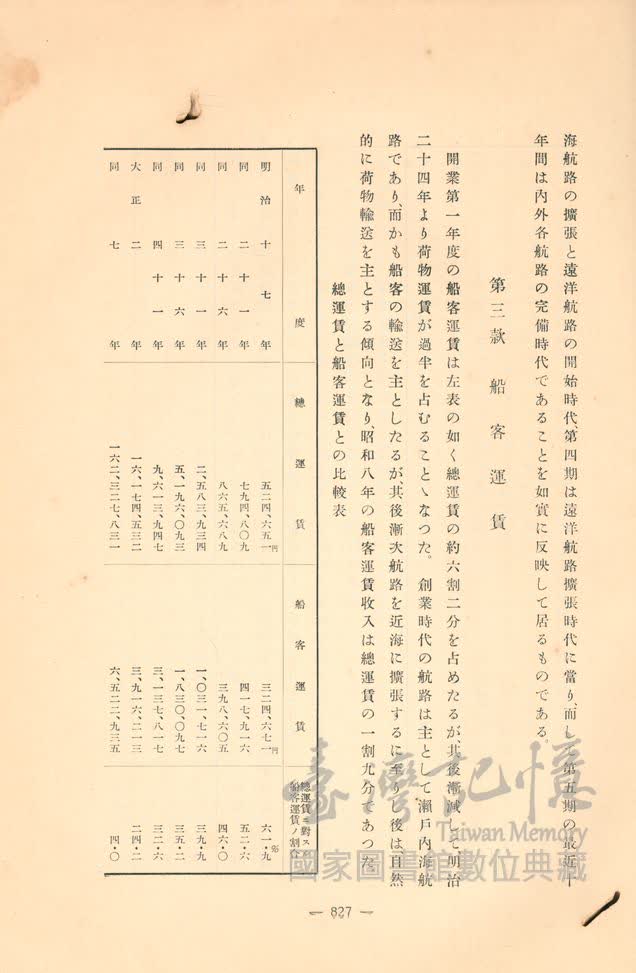 海航路の擴張と遠洋航路の開始時代、第四期は遠洋航路擴張時代に當り、而して第五期の最近十
年間は內外各航路の完備時代であることを如實に反映して居るものである。
第三款 船客運賃
開業第一年度の船客運賃は左表の如く總運賃の約六割二分を占めたるが、其後漸減して、明治
二十四年より荷物運賃が過半を占むることゝなつた。創業時代の航路は主として瀨戶內海航
路であり、而かも船客の輸送を主としたるが、其後漸次航路を近海に擴張するに至り、後は、自然
的に荷物輸送を主とする傾向となり、昭和八年の船客運賃收入は總運賃の一割九分であつた。
總運賃と船客運賃との比較表
年度 總運賃 船客運賃 總運賃ニ對スル船客運賃ノ割合
明治十七年 五二四、六五一円 三二四、六七一円 六一・九%
同二十一年 七九四、八〇九 四一七、九一六 五二・六
同二十六年 八六五、六八九 三九八、六〇五 四六・〇
同三十一年 二、五八三、九三四 一、〇三一、七一六 三九・九
同三十六年 五、一九六、〇九三 一、八三〇、〇九七 三五・二
同四十一年 九、六一三、九四七 三、一三七、八一七 三二・六
大正二年 一六、一七四、五三二 三、九一六、二一三 二四・二
同七年 一六二、三二七、八三一 六、五二二、九三五 四・〇
— 827 —
臺灣記憶
Taiwan Memory
國家圖書館數位典藏